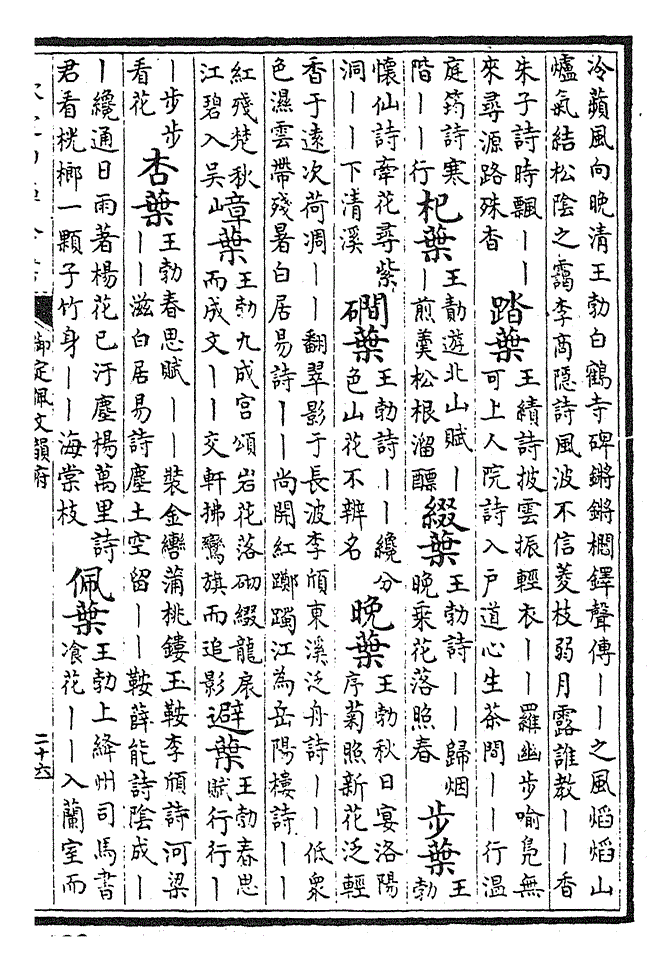 冷蘋風向晚清王勃白鶴寺碑鏘鏘櫩鐸聲傳〡〡之風熖熖山
爐氣結松陰之靄李商隱詩風波不信菱枝弱月露誰教〡〡香
朱子詩時飄〡〡
來尋源路殊杳
踏葉
王績詩披雲振輕衣〡〡羅幽步喻鳧無
可上人院詩入戶道心生茶間〡〡行溫
庭筠詩寒
階〡〡行
杞葉
王勃遊北山賦〡
〡煎羹松根溜醥
綴葉
王勃詩〡〡歸烟
晚乘花落照春
步葉
王
勃
懷仙詩牽花尋紫
洞〡〡下清溪
磵葉
王勃詩〡〡纔分
色山花不辨名
晚葉
王勃秋日宴洛陽
序菊照新花泛輕
香于遠次荷凋〡〡翻翠影于長波李頎東溪泛舟詩〡〡低衆
色濕雲帶殘暑白居易詩〡〡尚開紅躑躅江為岳陽樓詩〡〡
紅殘楚秋
江碧入吳
嶂葉
王勃九成宮頌岩花落砌綴龍扆
而成文〡〡交軒拂鸞旗而追影
避葉
王勃春思
賦行行〡
〡步步
看花
杏葉
王勃春思賦〡〡裝金轡蒲桃鏤玉鞍李頎詩河梁
〡〡滋白居易詩塵土空留〡〡鞍薛能詩陰成〡
〡纔通日雨著楊花已汙塵楊萬里詩
君看桄榔一顆子竹身〡〡海棠枝
佩葉
王勃上絳州司馬書
飡花〡〡入蘭室而
御定佩文韻府
二十六